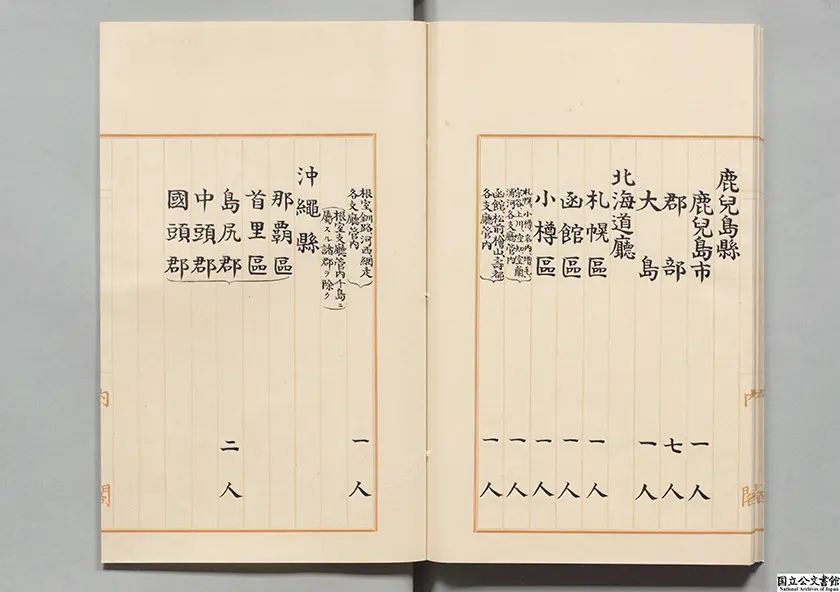 鹿兒島縣
鹿兒島市 一人
郡部 七人
大島 一人
北海道廳
札幌區 一人
函館區 一人
小樽區 一人
札幌、小樽、岩内、増毛
宗谷、上川、空知、室蘭
浦河各支廳管内 一人
函館、松前、檜山、壽都
各支廳管内 一人
根室、釧路、河西、網走
各支廳管内 一人
(根室支廳管内千島ニ
屬スル諸郡ヲ除ク)
沖繩縣
那覇區
首里區
島尻郡 二人
中頭郡
國頭郡
内閣
国立公文書館
National Archives of Japan